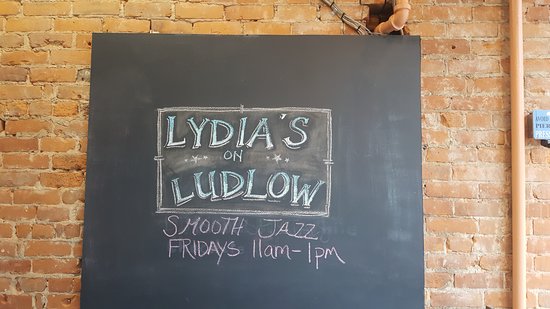 LYDIA'S
ON
LUDLOW
SMOOTH JAZZ
FRIDAYS 11am-1pm